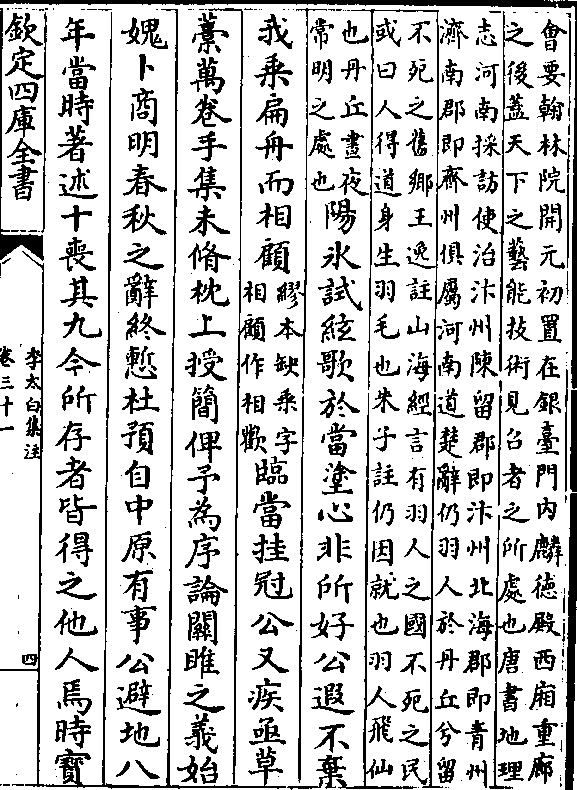 會要翰林院開元初置在銀臺門内麟徳殿西廂重廊
之後蓋天下之藝能技術見召者之所處也唐書地理
志河南採訪使治汴州陳留郡即汴州北海郡即青州
濟南郡即齊州俱屬河南道楚辭仍羽人於丹丘兮留
不死之舊鄉王逸註山海經言有羽人之國不死之民
或曰人得道身生羽毛也朱子註仍因就也羽人飛仙
也丹丘晝夜
常明之處也
陽氷試絃歌於當塗心非所好公遐不棄
我乘扁舟而相顧
繆本缺乘字
相顧作相歡
臨當挂冠公又疾亟草
藁萬卷手集未脩枕上授簡俾予為序論關雎之義始
媿卜商明春秋之辭終慙杜預自中原有事公避地八
年當時著述十喪其九今所存者皆得之他人焉時寶
欽定四庫全書
李太白集注
卷三十一
四